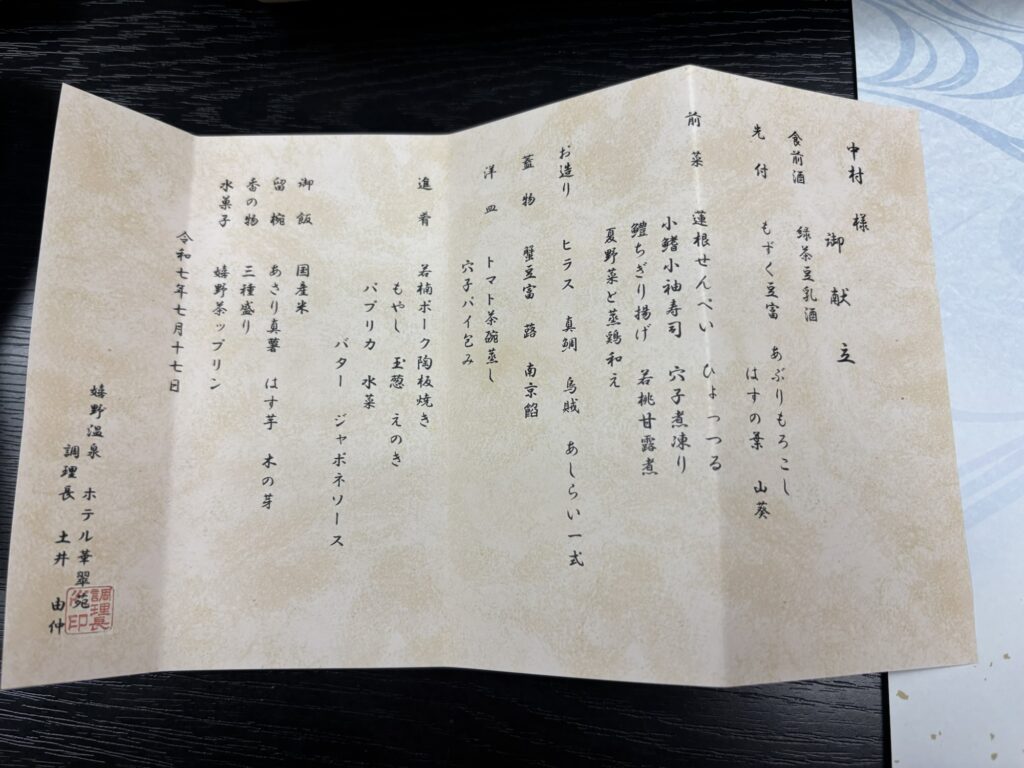 中村 様
御 献 立
食前酒 緑茶豆乳酒
先 付 もずく豆富 あぶりもろこし
はすの葉 山葵
前 菜 蓮根せんべい ひょっつる
小鰭小袖寿司 穴子煮凍り
鱧ちぎり揚げ 若桃甘露煮
夏野菜と蒸鶏和え
お造り ヒラス 真鯛 烏賊 あしらい一式
蓋 物 蟹豆富 蕗 南京餡
洋 皿 トマト茶碗蒸し
穴子パイ包み
進 肴 若楠ポーク陶板焼き
もやし 玉葱 えのき
パプリカ 水菜
バター ジャポネソース
御 飯 国産米
留 椀 あさり真薯 はす芋 木の芽
香の物 三種盛り
水菓子 嬉野茶ップリン
令和七年七月十七日
嬉野温泉 ホテル華翠苑
調理長 土井 由仲
調理長
印